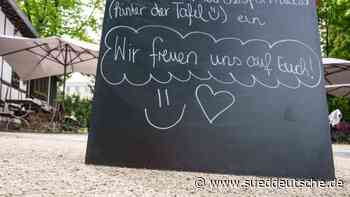 (Hunter der Tafel☺) ein
Wir freuen uns auf Euch!
www.sueddeutsche.de